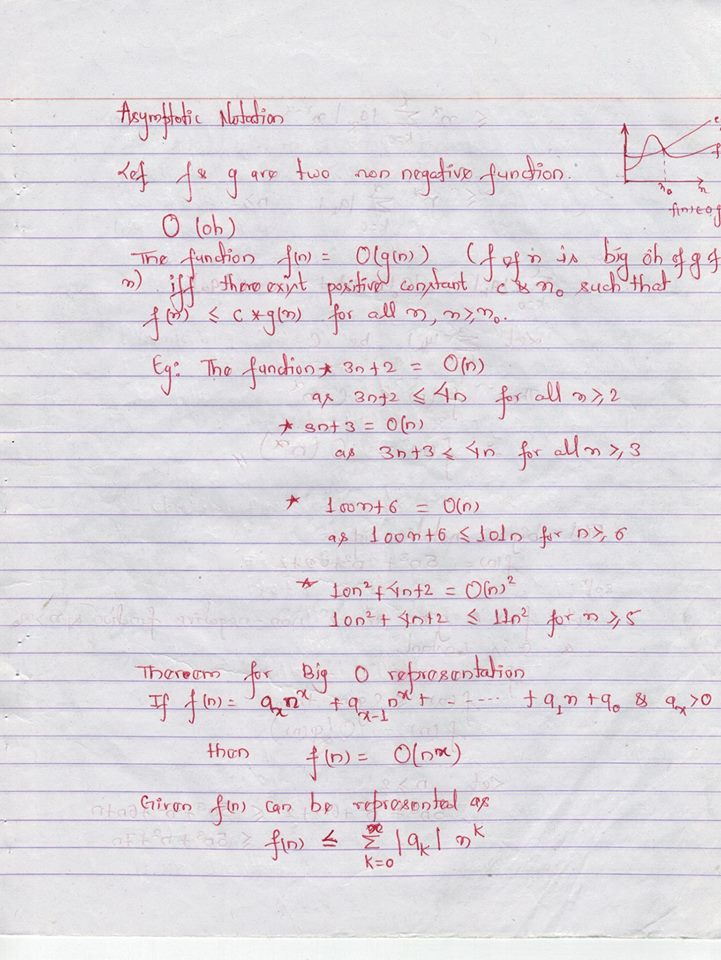 Asymptotic Notation
Let f & g are two non negative function.
n₀ n
O (oh)
The function f(n) = O(g(n)) (f of n is big oh of g of
n) iff there exist positive constant c & n₀ such that
f(n) ≤ c*g(n) for all n, n≥n₀.
Eg: The function * 3n+2 = O(n)
as 3n+2 ≤ 4n for all n≥2
* 3n+3 = O(n)
as 3n+3 ≤ 4n for all n≥3
* 100n+6 = O(n)
as 100n+6 ≤ 101n for n≥6
* 10n²+4n+2 = O(n)²
10n²+4n+2 ≤ 11n² for n≥5
Thereom for Big O representation
If f(n) = aₓnˣ + aₓ₋₁nˣ + - - - ..... + a₁n + a₀ & aₓ>0
then f(n) = O(nˣ)
Given f(n) can be represented as
f(n) ≤ Σ |aₖ| nᵏ
k=0